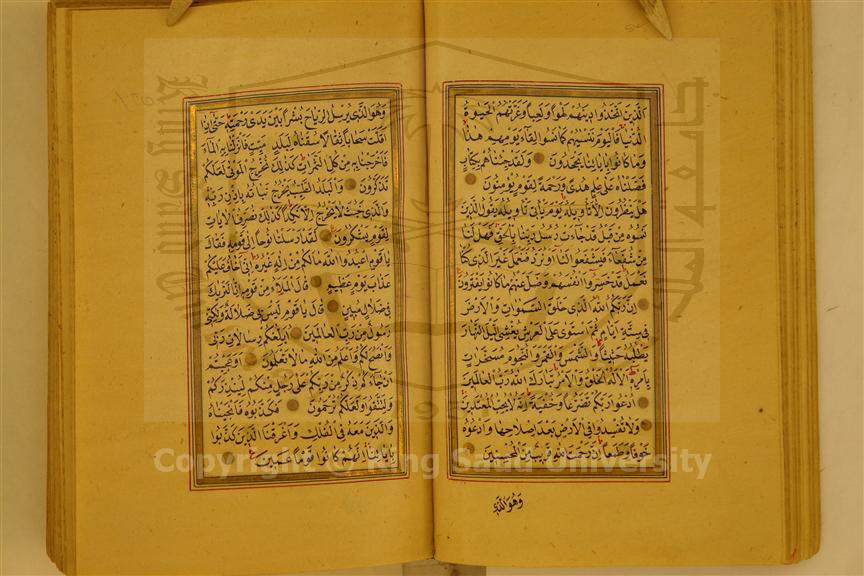 الذين اتخذوا دينهم لهوا ولعبا وغرتهم الحيوة
الدنيا فاليوم ننسيهم كما نسوا لقاء يومهم هذا
وما كانوا باياتنا يجحدون ولقد جئناهم بكتاب
فصلناه على علم هدى ورحمة لقوم يؤمنون
هل ينظرون الا تاويله يوم ياتي تاويله يقول الذين
نسوه من قبل قد جاءت رسل ربنا بالحق فهل لنا
من شفعاء فيشفعوا لنا او نرد فنعمل غير الذي كنا
نعمل قد خسروا انفسهم وضل عنهم ما كانوا يفترون
ان ربكم الله الذي خلق السموات والارض
في ستة ايام ثم استوى على العرش يغشى الليل النهار
يطلبه حثيثا والشمس والقمر والنجوم مسخرات
بامره الا له الخلق والامر تبارك الله رب العالمين
ادعوا ربكم تضرعا وخفية انه لا يحب المعتدين
ولا تفسدوا في الارض بعد اصلاحها وادعوه
خوفا وطمعا ان رحمت الله قريب من المحسنين
وهو الذي
وهو الذي يرسل الرياح بشرا بين يدي رحمته حتى اذا
اقلت سحابا ثقالا سقناه لبلد ميت فانزلنا به الماء
فاخرجنا به من كل الثمرات كذلك نخرج الموتى لعلكم
تذكرون والبلد الطيب يخرج نباته باذن ربه
والذي خبث لا يخرج الا نكدا كذلك نصرف الايات
لقوم يشكرون لقد ارسلنا نوحا الى قومه فقال
يا قوم اعبدوا الله مالكم من اله غيره اني اخاف عليكم
عذاب يوم عظيم قال الملاء من قومه انا لنريك
في ضلال مبين قال يا قوم ليس بي ضلالة ولكني
رسول من رب العالمين ابلغكم رسالات ربي
وانصح لكم واعلم من الله ما لا تعلمون اوعجبتم
ان جاءكم ذكر من ربكم على رجل منكم لينذركم
ولتتقوا ولعلكم ترحمون فكذبوه فانجيناه
والذين معه في الفلك واغرقنا الذين كذبوا
باياتنا انهم كانوا قوما عمين
Copyright © King Saud University
جامعة الملك سعود
King Saud University
1957